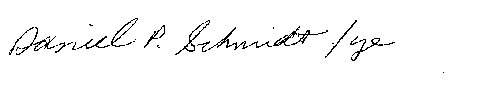 Daniel P. Schmidt /ye